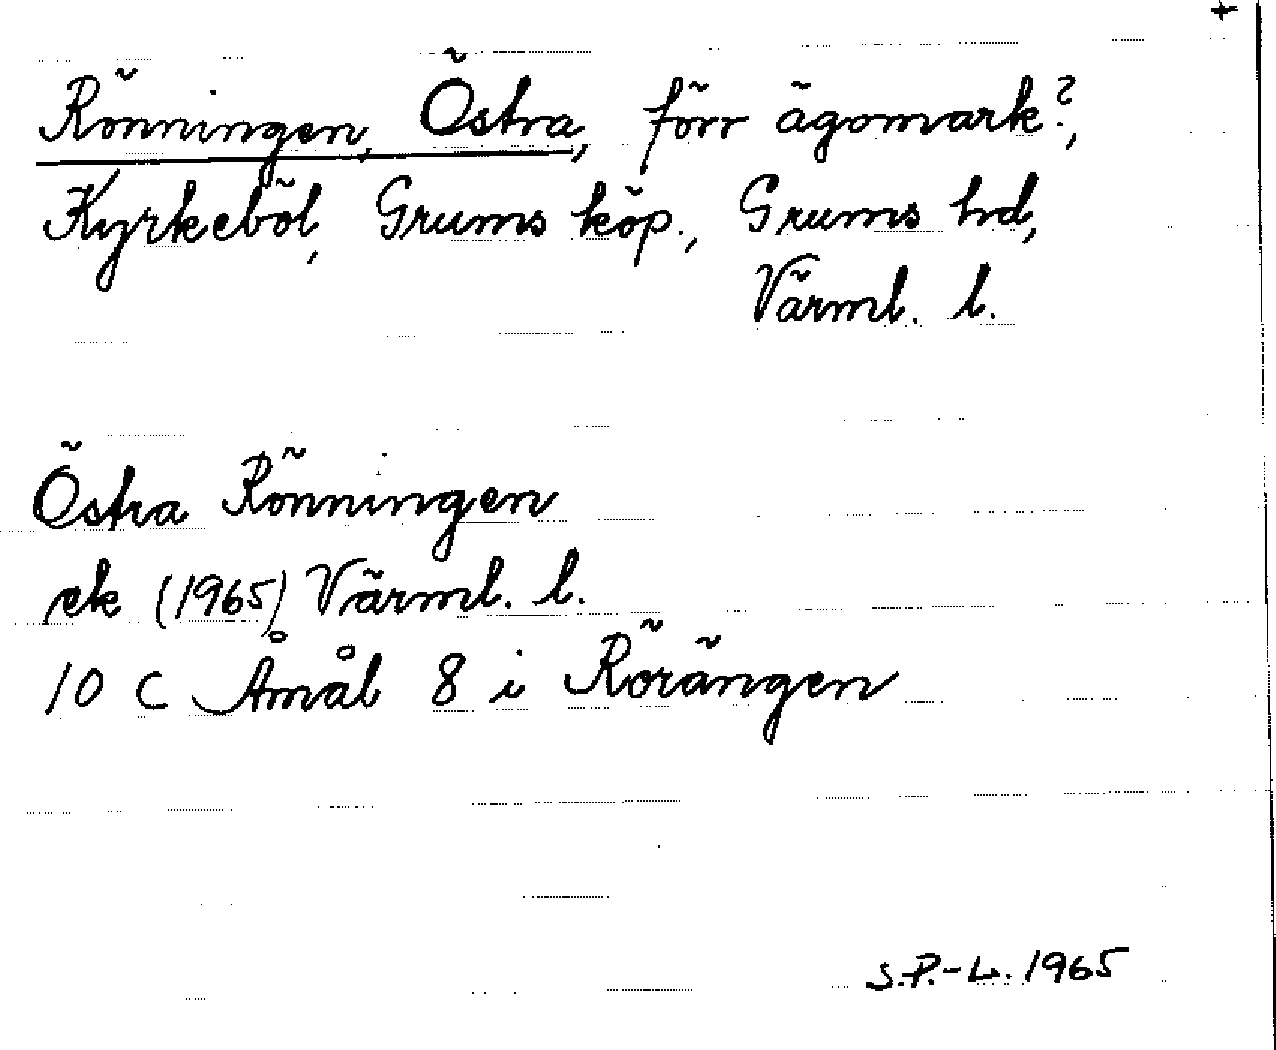 +
Rönningen, Östra, förr ägomark?,
Kyrkeböl, Grums köp., Grums hd,
Värml. l.
Östra Rönningen
ek (1965) Värml. l.
10 C Åmål 8 i Rörängen
S.P.-L. 1965